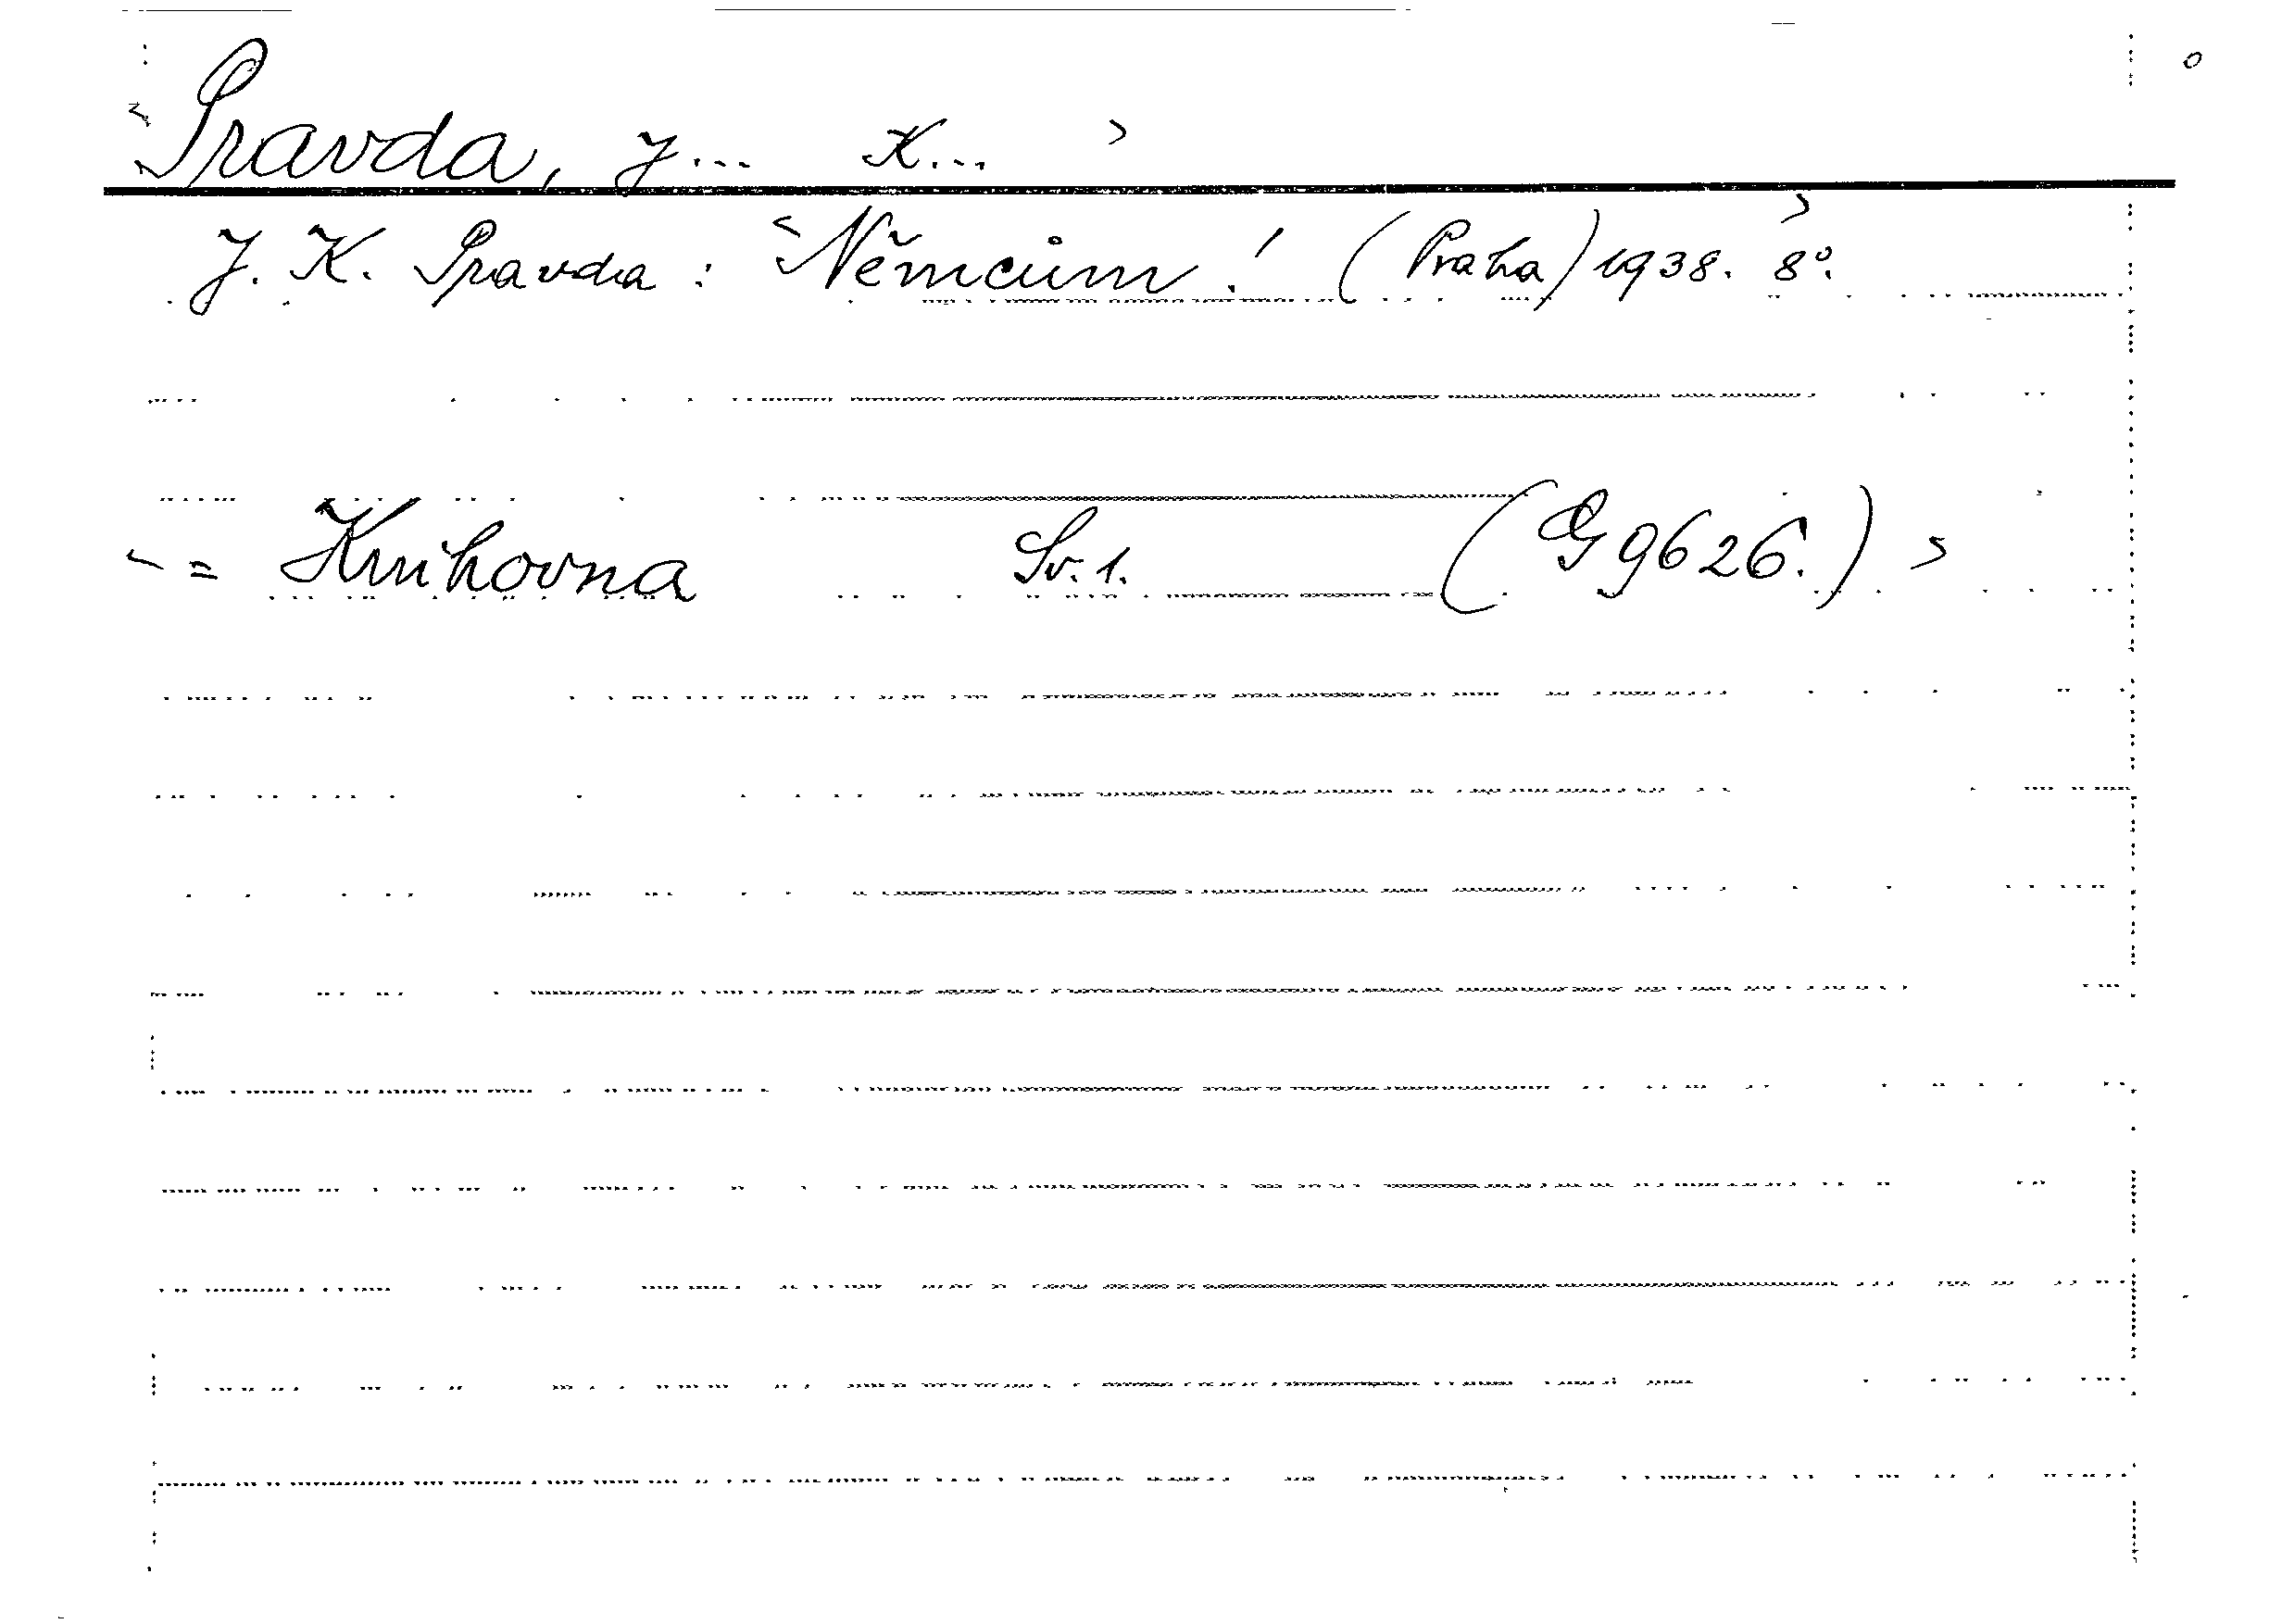 <Pravda, J... K... >
J. K. Pravda: <Němcům! (Praha) 1938. 8°. >
<= Knihovna Sv. 1. (G 9626.) >